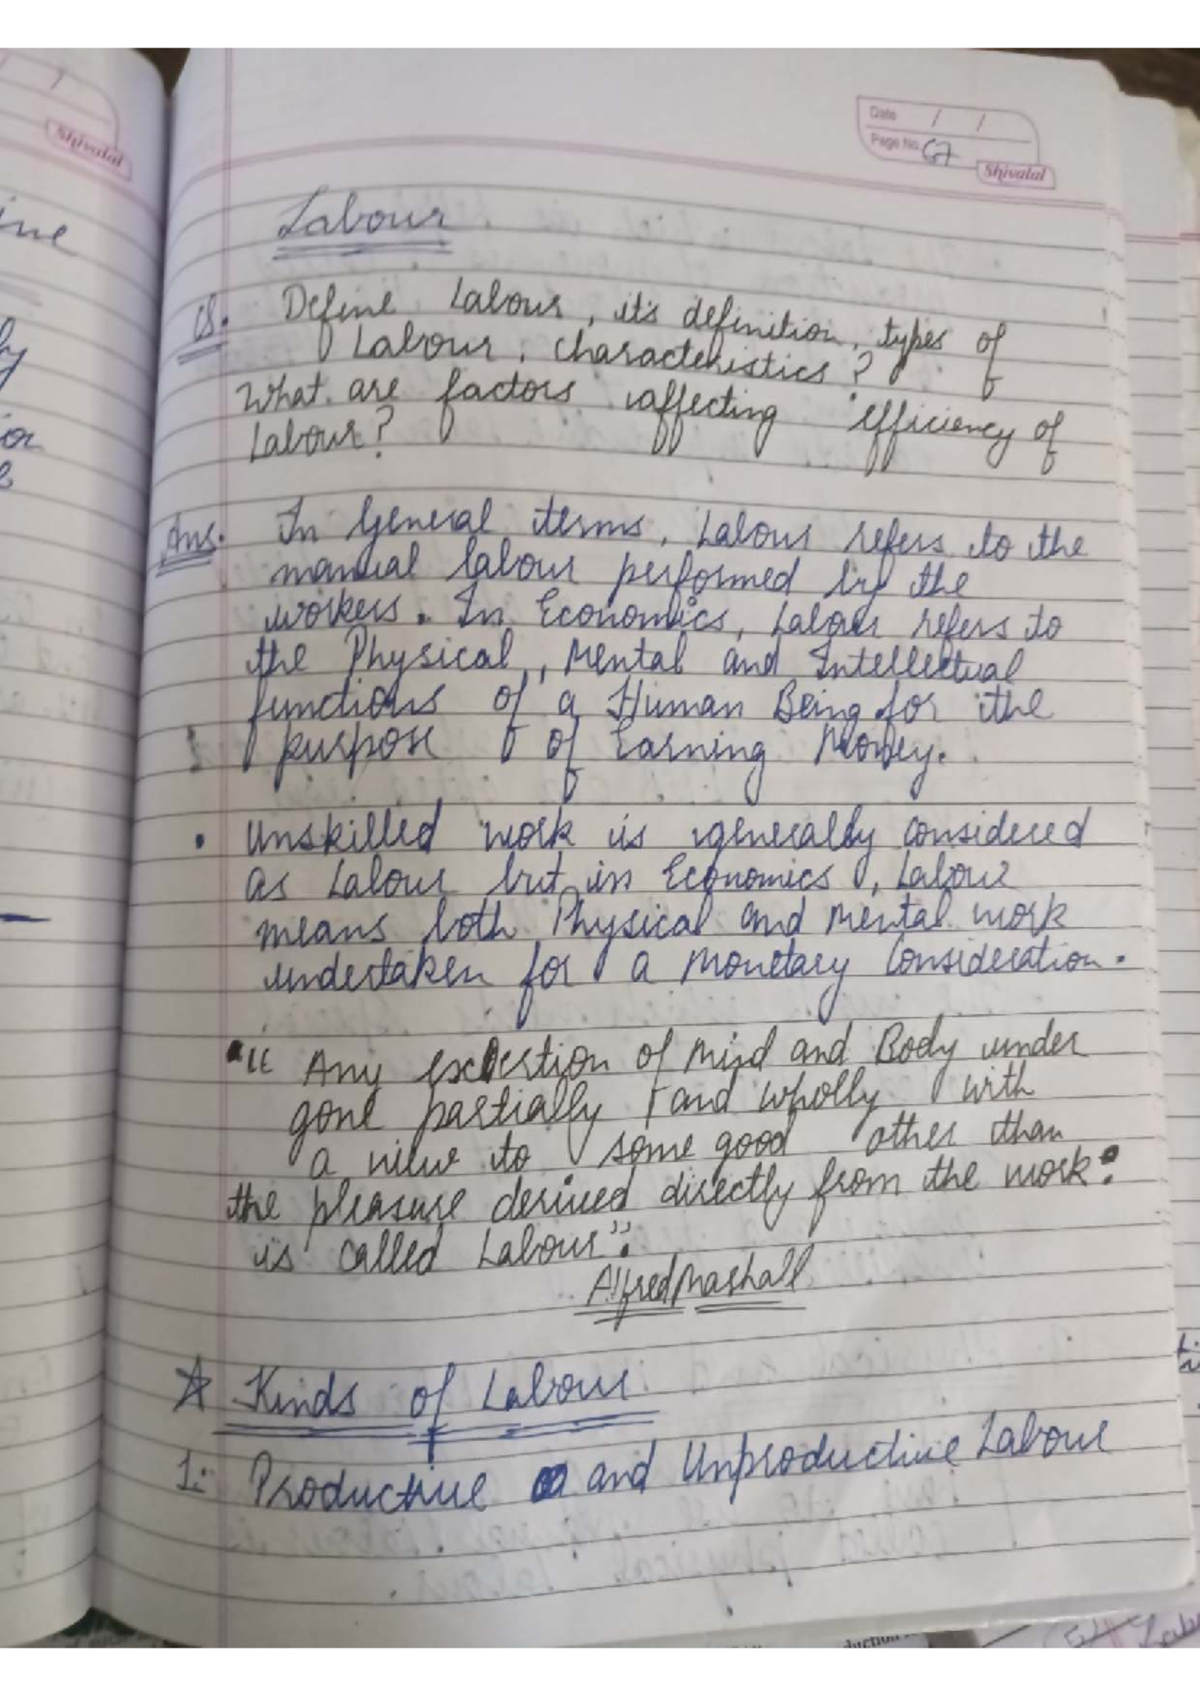 Date / /
Page No. 67
Shivalal
Shivalal
Labour
Q. Define Labour, it's definition, types of
Labour, characteristics?
What are factors affecting efficiency of
Labour?
Ans. In General terms, Labour refers to the
manual labour performed by the
workers. In Economics, Labour refers to
the Physical, Mental and Intellectual
functions of a Human Being for the
purpose of Earning Money.
• Unskilled work is generally considered
as Labour but in Economics, Labour
means both Physical and Mental work
undertaken for a Monetary Consideration.
"Any exertion of Mind and Body under
gone partially and wholly with
a view to some good other than
the pleasure derived directly from the work.
is called Labour".
Alfred Mashall
☆ Kinds of Labour
1:- Productive and Unproductive Labour